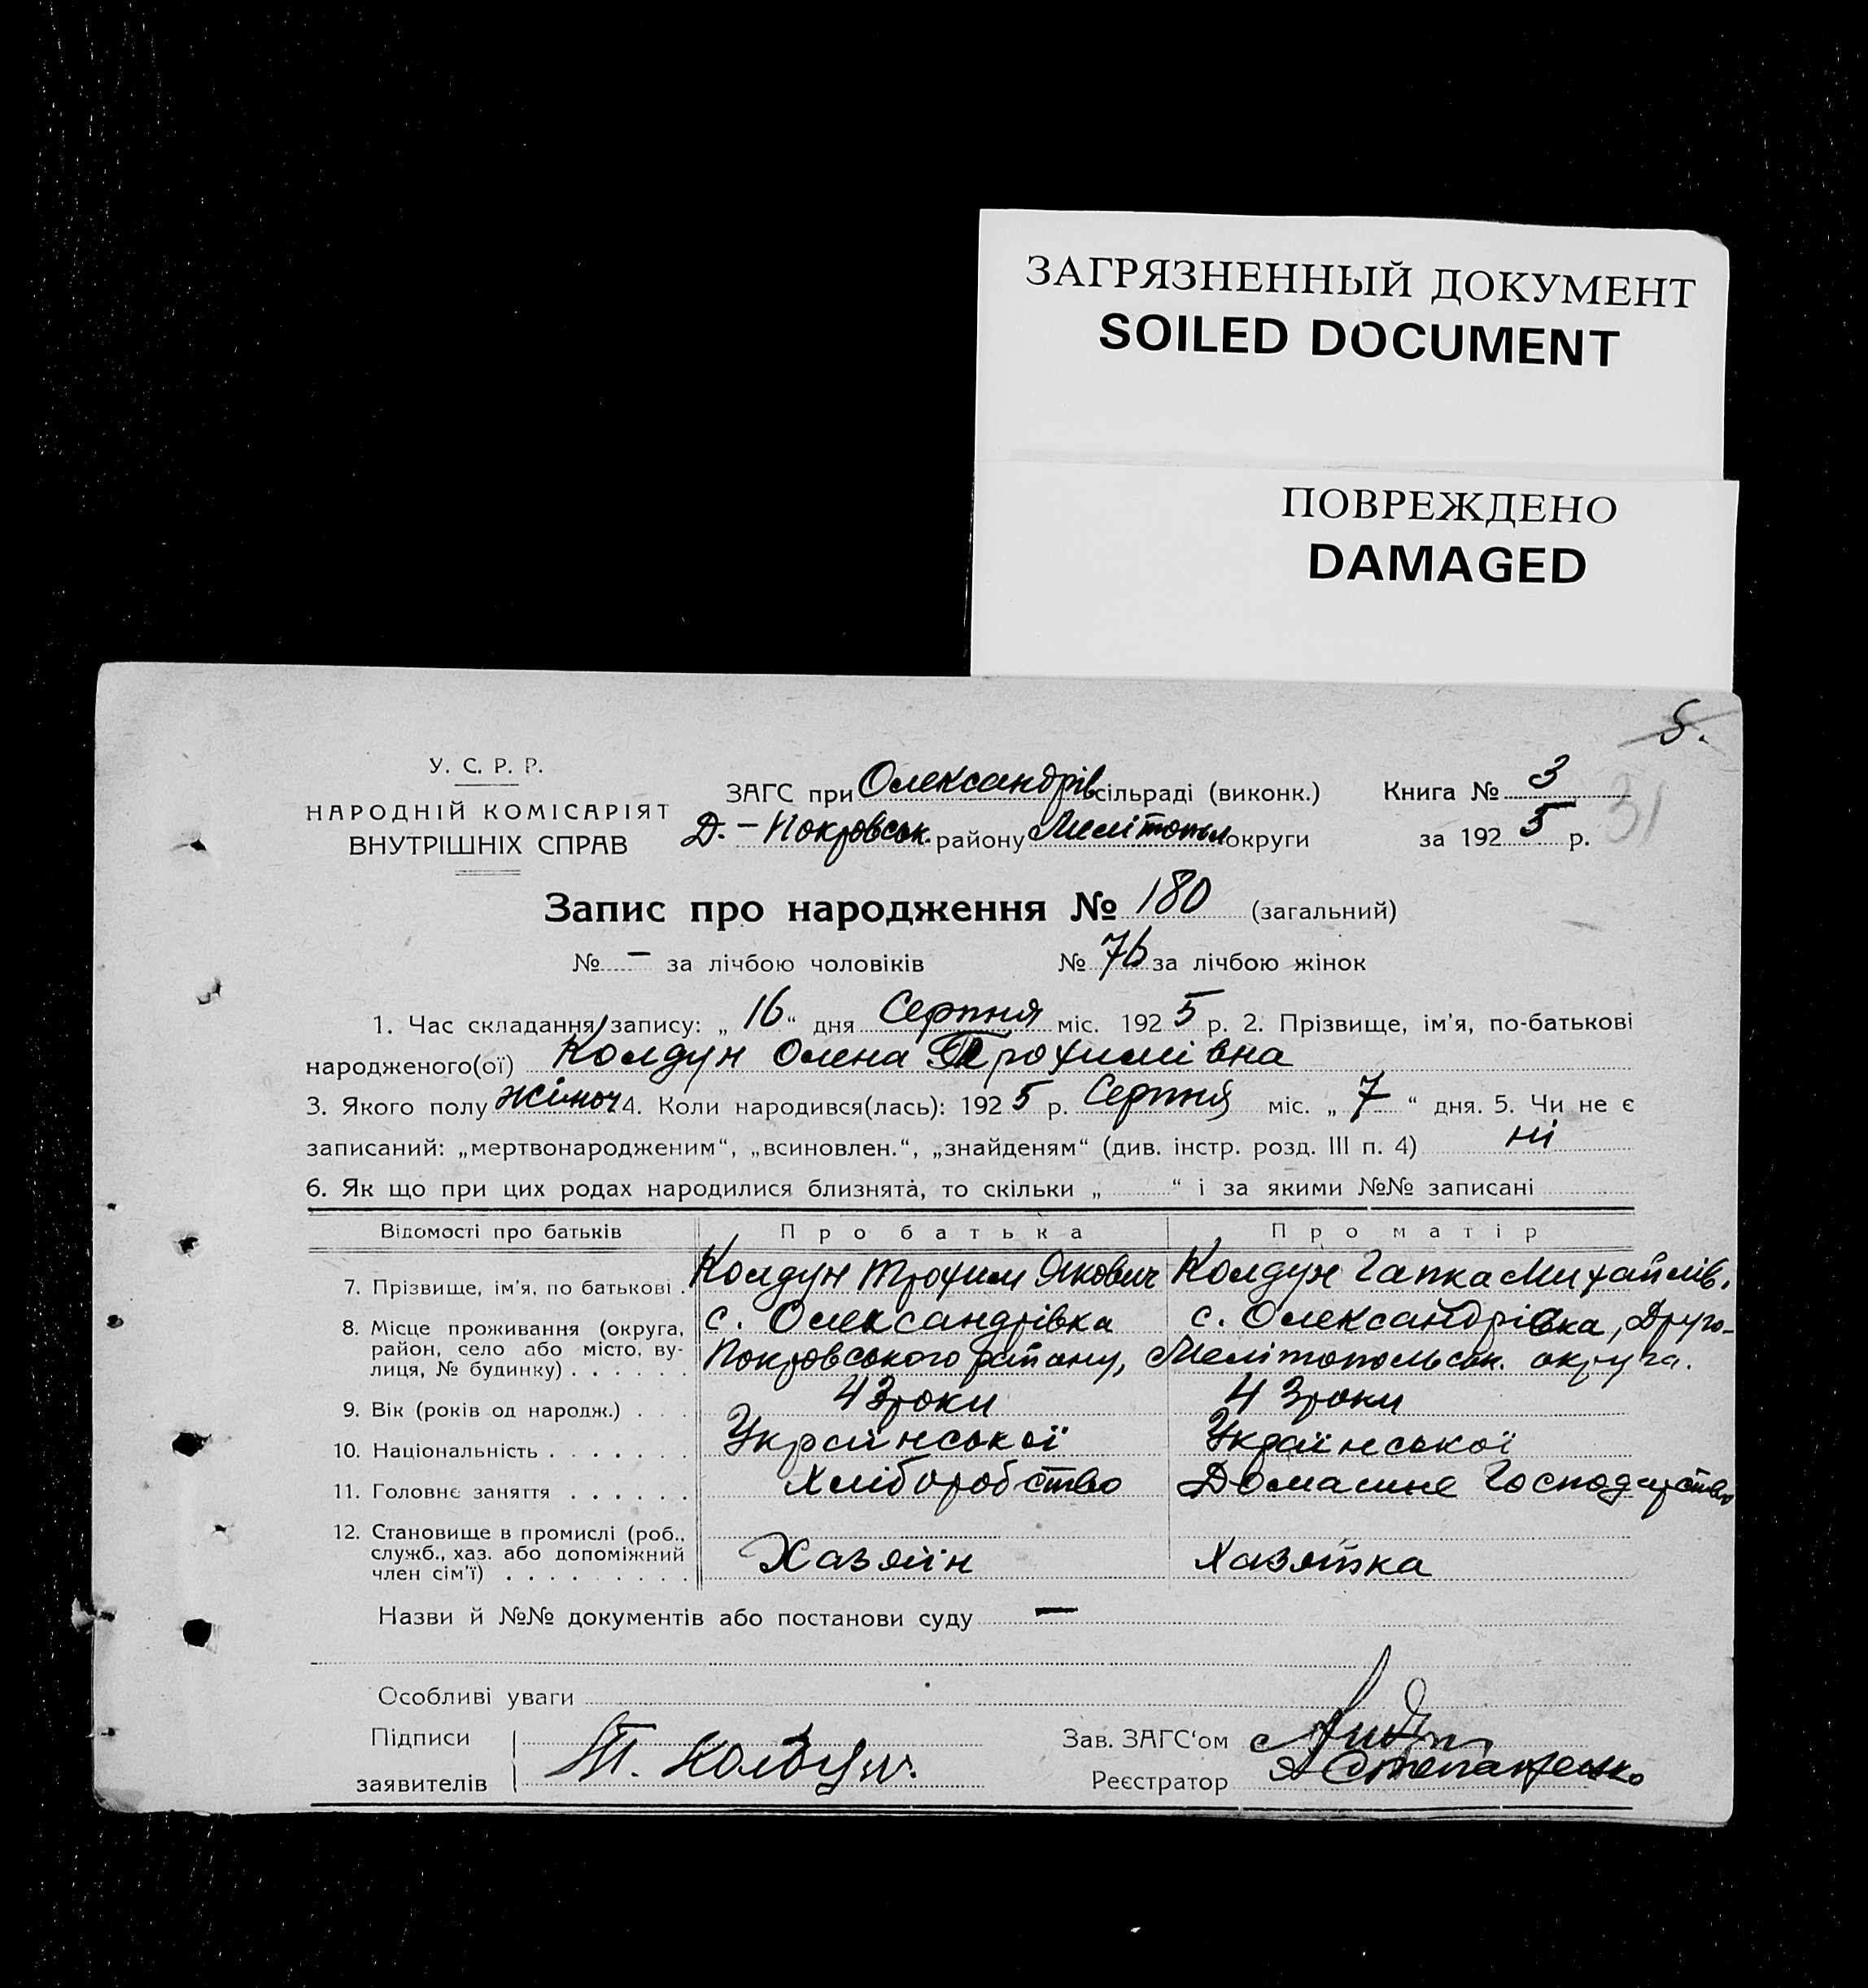 ЗАГРЯЗНЕННЫЙ ДОКУМЕНТ
SOILED DOCUMENT
ПОВРЕЖДЕНО
DAMAGED
5.
31
У. С. Р. Р.
НАРОДНІЙ КОМІСАРІЯТ
ВНУТРІШНІХ СПРАВ
ЗАГС при Олександрів сільраді (виконк.)
Д.-Покровськ. району Мелітопил округи
Книга № 3
за 1925 р.
Запис про народження № 180 (загальний)
№ — за лічбою чоловіків № 76 за лічбою жінок
1. Час складання запису: „16“ дня Серпня міс. 1925 р. 2. Прізвище, ім’я, по-батькові
народженого(ої) Колдун Олена Трохимівна
3. Якого полу жіноч 4. Коли народився(лась): 1925 р. Серпня міс. „7“ дня. 5. Чи не є
записаний: „мертвонародженим“, „всиновлен.“, „знайденям“ (див. інстр. розд. III п. 4) ні
6. Як що при цих родах народилися близнята, то скільки „ “ і за якими №№ записані
Відомості про батьків Про батька Про матір
7. Прізвище, ім’я, по батькові . Колдун Трохим Якович Колдун Гапка Михайлів.
8. Місце проживання (округа, с. Олександрівка с. Олександрівка, Друго-
район, село або місто, ву- Покровського району, Мелітопольськ. округа.
лиця, № будинку) . . . . . .
9. Вік (років од народж.) . . . 43 роки 43 роки
10. Національність . . . . . . . Української Української
11. Головнє заняття . . . . . . Хліборобство Домашне Господарство
12. Становище в промислі (роб.,
служб., хаз. або допоміжний Хазяїн Хазяйка
член сім’ї) . . . . . . . . .
Назви й №№ документів або постанови суду —
Особливі уваги
Підписи
заявителів Т. Колдун.
Зав. ЗАГС‘ом
Реєстратор А Степаненко